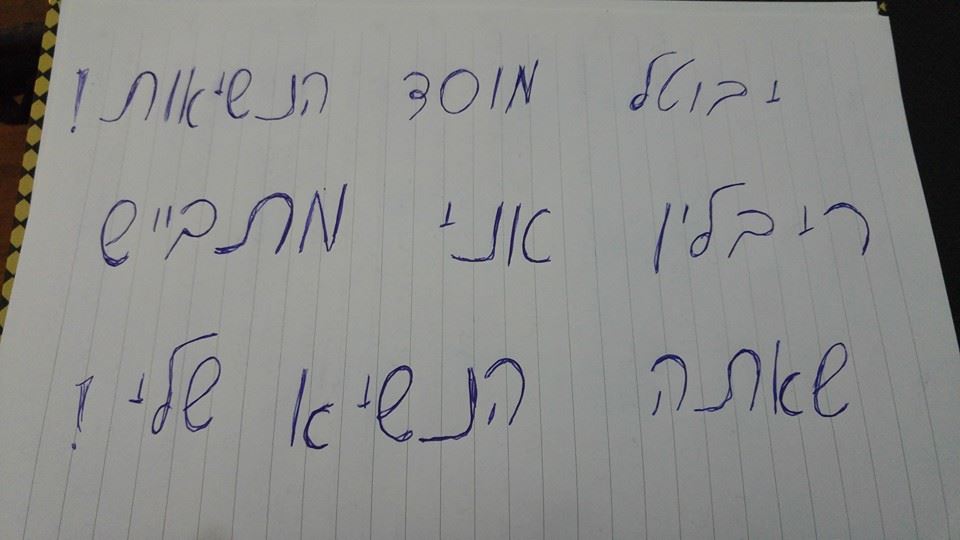 יבוטל מוסד הנשיאות!
ריבלין אני מתבייש
שאתה הנשיא שלי!